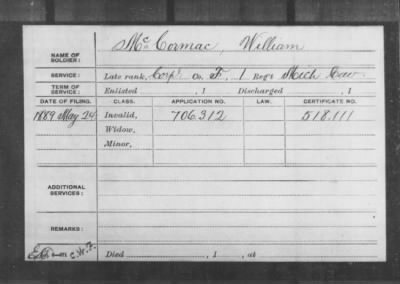 NAME OF SOLDIER: McCormac, William
SERVICE: Late rank, Corp'l Co. F, 1 Reg't Mich Cav.
TERM OF SERVICE: Enlisted , 1 Discharged , 1
DATE OF FILING. CLASS. APPLICATION NO. LAW. CERTIFICATE NO.
1889 May 24 Invalid, 706312 518,111
Widow,
Minor,
ADDITIONAL SERVICES:
REMARKS:
Died , 1 , at